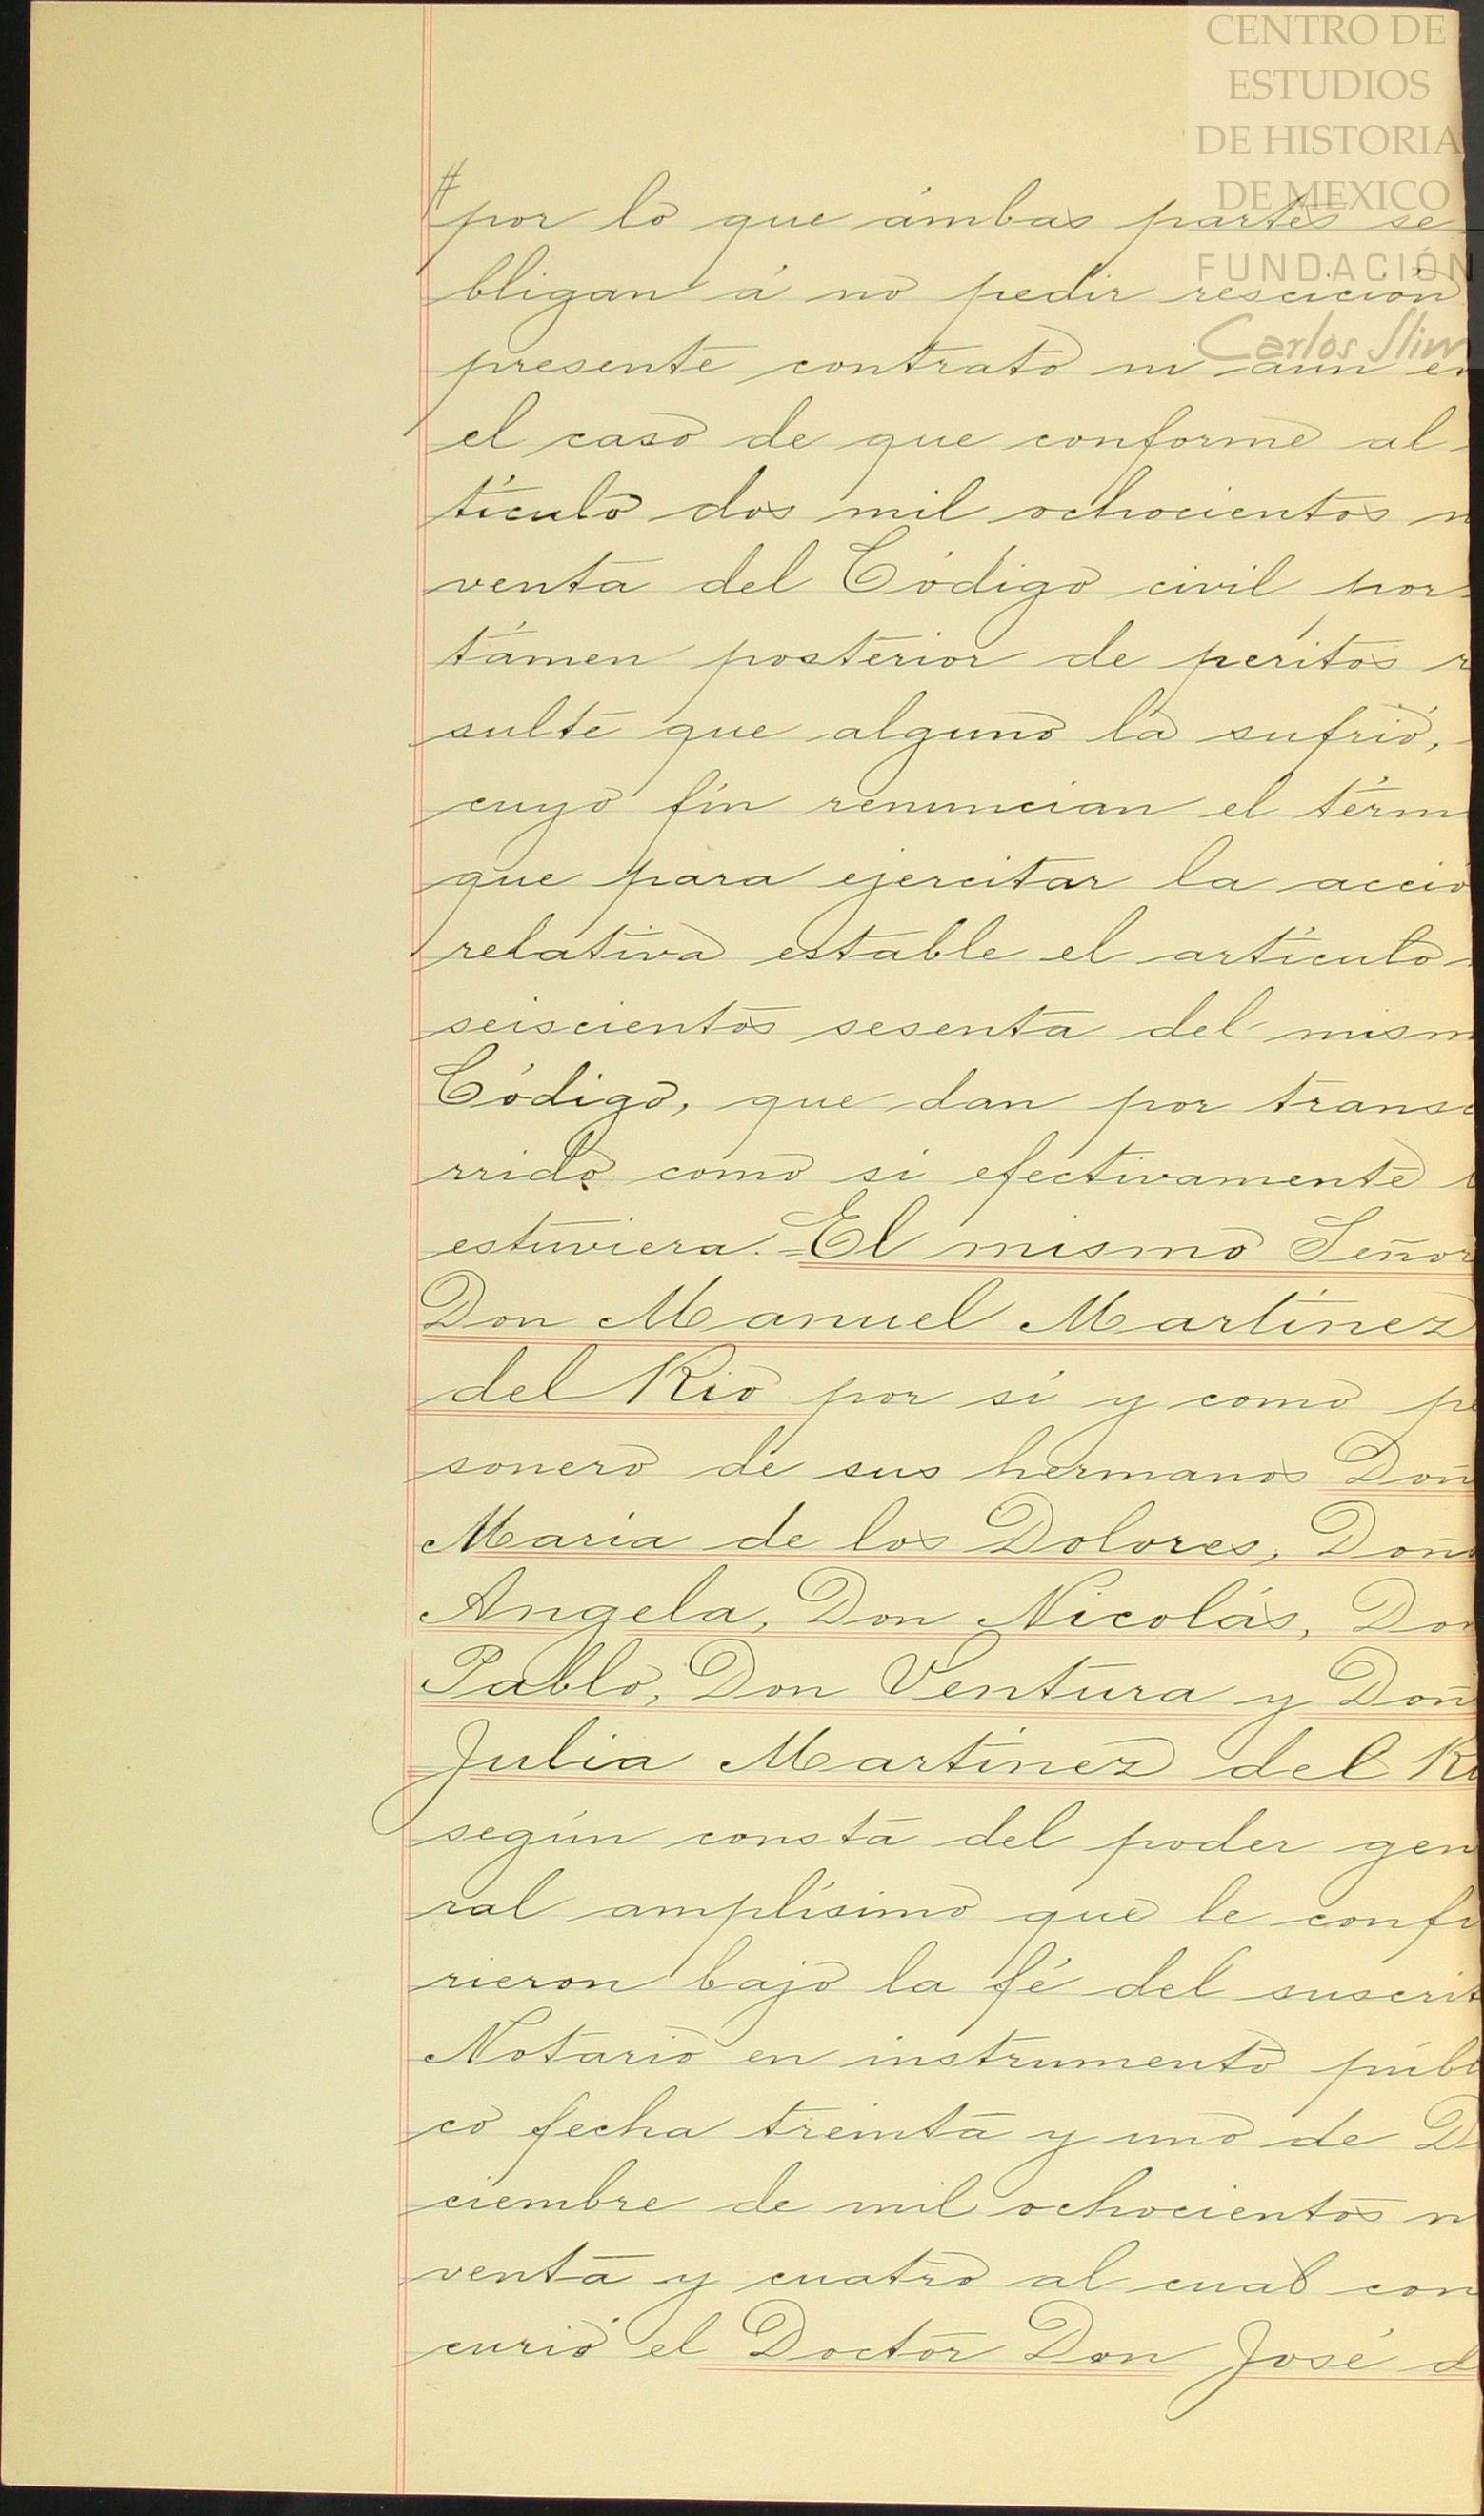 CENTRO DE
ESTUDIOS
DE HISTORIA
DE MEXICO
FUNDACIÓN
Carlos Slim
# por lo que ámbas partes se
bligan á no pedir rescición
presente contrato ni aun en
el caso de que conforme al
tículo dos mil ochocientos n
venta del Código civil por
támen posterior de peritos r
sulte que alguno la sufrió,
cuyo fín renuncian el térm
que para ejercitar la acció
relativa estable el artículo
seiscientos sesenta del mism
Código, que dan por transc
rrido como si efectivamente
estuviera. = El mismo Señor
Don Manuel Martínez
del Rio por sí y como pe
sonero de sus hermanos Doñ
Maria de los Dolores, Doñ
Angela, Don Nicolás, Don
Pablo, Don Ventura y Doñ
Julia Martínez del Ri
según consta del poder gen
ral amplísimo que le confi
rieron bajo la fé del suscrit
Notario en instrumento públi
co fecha treinta y uno de D
ciembre de mil ochocientos n
venta y cuatro al cual con
curió el Doctor Don José d